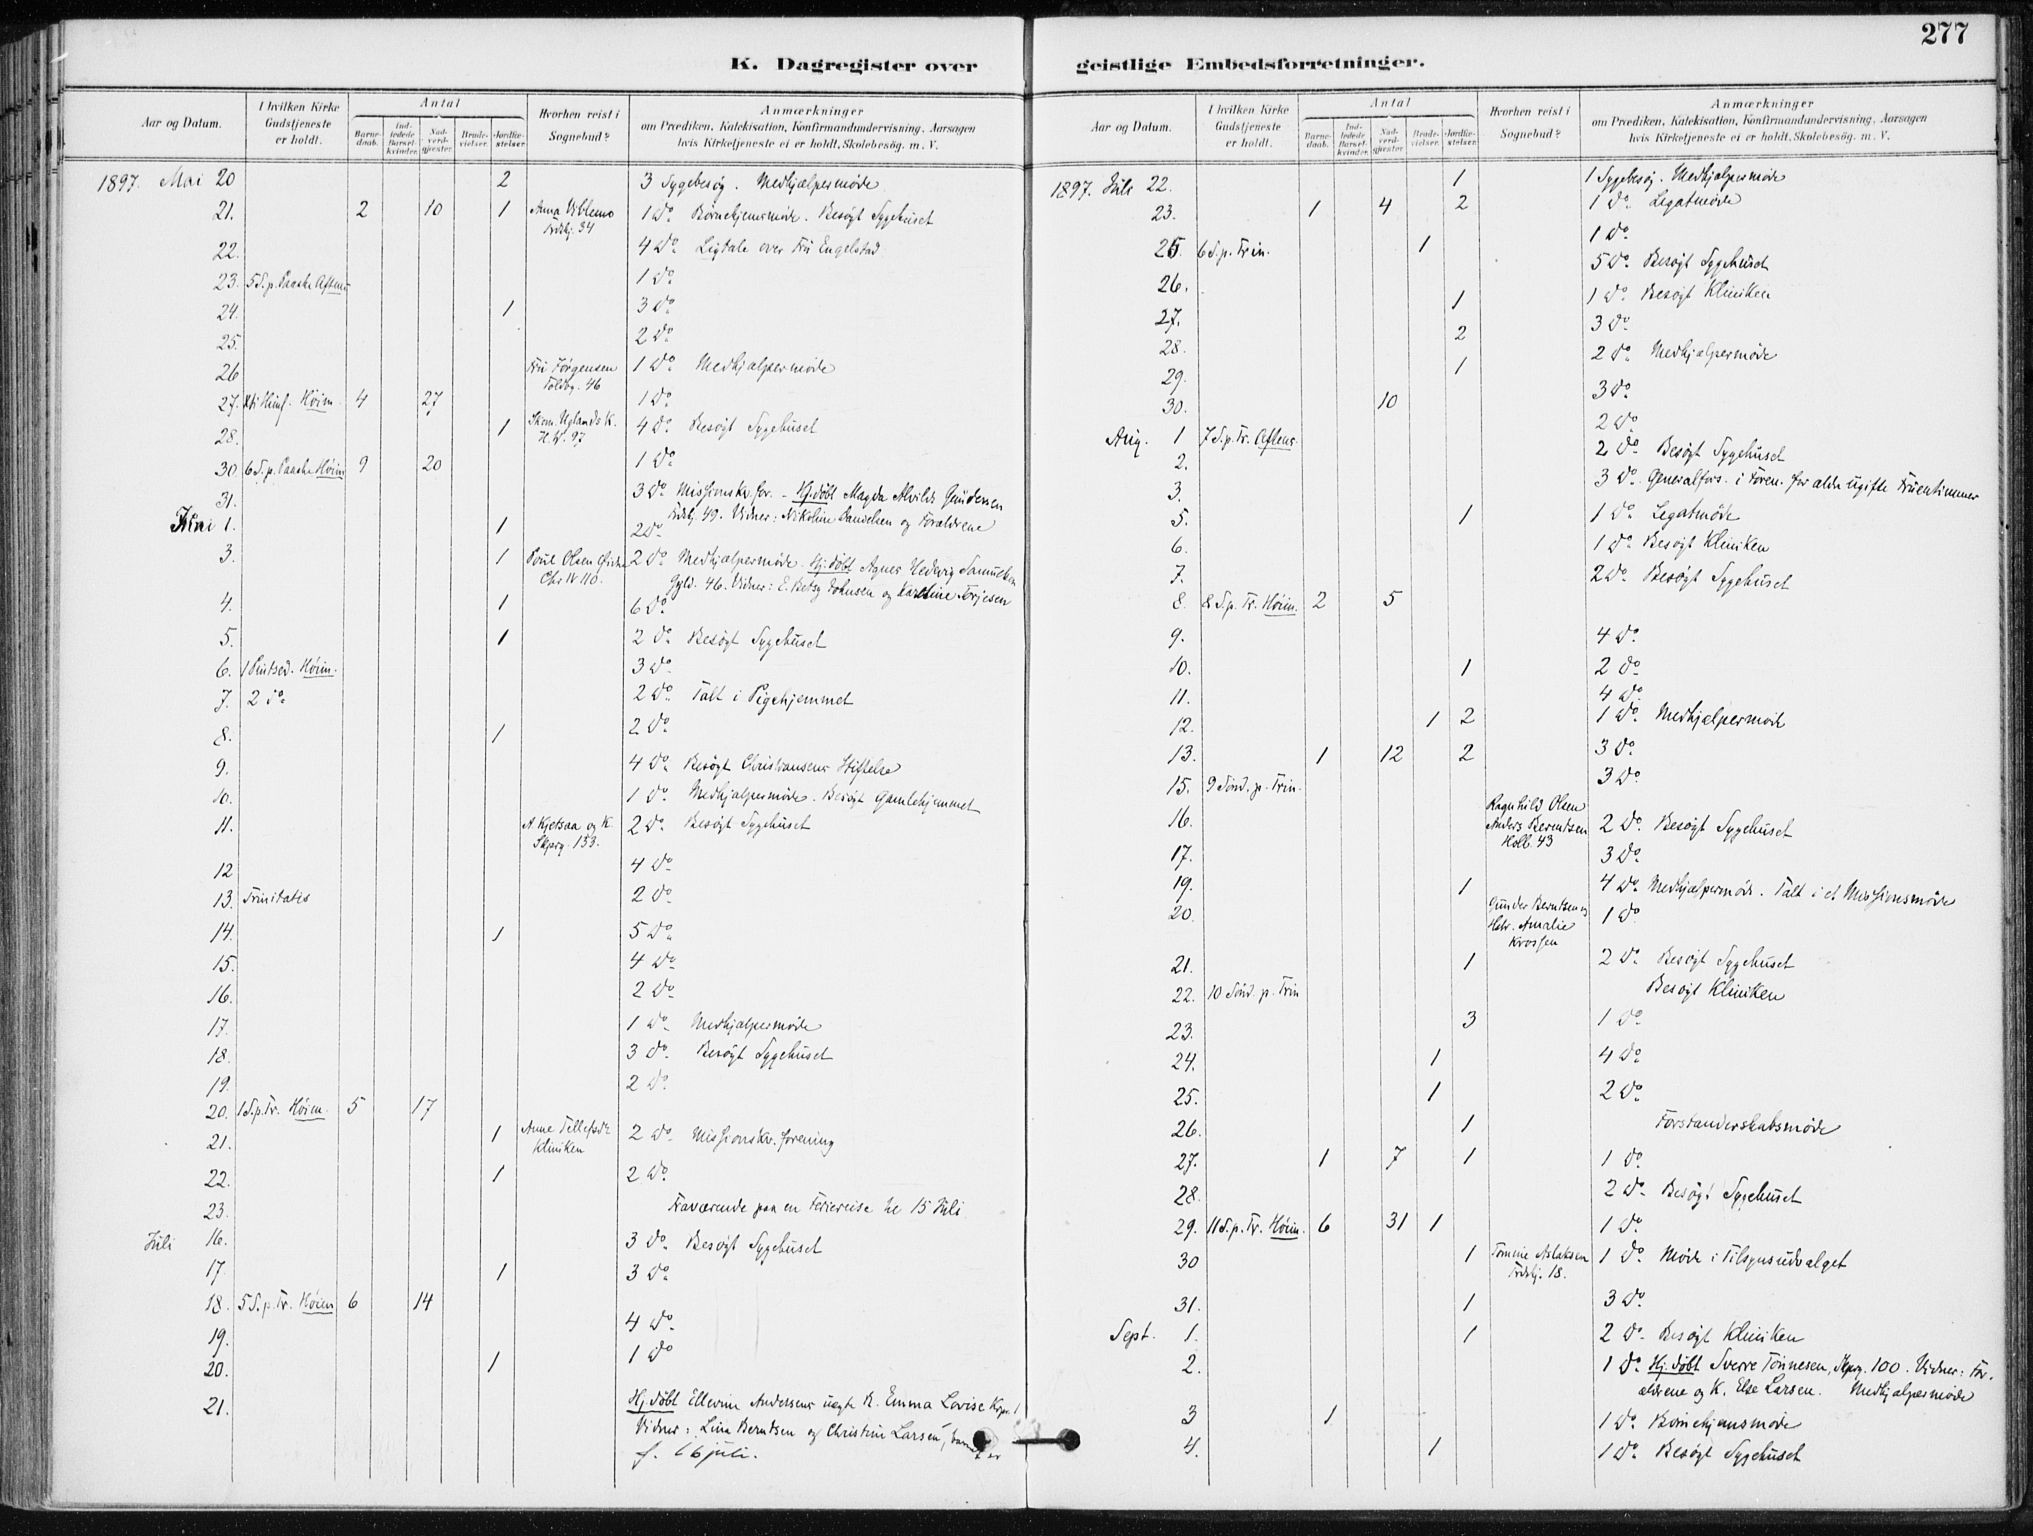 277
K. Dagregister over geistlige Embedsforretninger.
Aar og Datum. | I hvilken Kirke Gudstjeneste er holdt. | Antal | Barnedaab. | Indledede Barselkvinder. | Nadverdgjæster. | Brudevielser. | Jordfæstelser | Hvorhen reist i Sognebud? | Anmærkninger om Prædiken, Katekisation, Konfirmandundervisning, Aarsagen hvis Kirketjeneste ei er holdt, Skolebesøg. m. V.
1897. Mai 20 2 3 Sygebesøg. Medhjælpermøde
21. 2 10 1 Anna Viblemo Fredskj. 34 1 Do Børnehjemsmøde. Besøgt Sygehuset
22. 4 Do Ligtale over Fru Engelstad
23. 5 S. p. Paaske Aftens 1 Do
24. 1 3 Do
25. 2 Do
26 Fru Jørgensen Toldbg. 46 1 Do Medhjælpermøde
27. Kri Himf. Høim. 4 27 1 Do
28. 1 Skom. Uglands K. H. W. 97 4 Do Besøgt Sygehuset
30 6 S. p. Paaske Høim 9 20 1 Do
31. 3 Do Missionskv.for. - Hj.døbt Magda Alvilde Gundersen
Fredskj. 49. Vidner: Nikoline Danielsen og Forældrene
Juni 1. 1 2 Do
3. 1 Poul Olsen Chr IV 110. 2 Do Medhjælpermøde. Hj.døbt Agnes Hedevig Samuelsen
Gyld. 46. Vidner: E. Betsy Johnsen og Karoline Terjesen
4. 1 6 Do
5. 1 2 Do Besøgt Sygehuset
6. 1 Pintsed. Høim. 3 Do
7. 2 do 2 Do Talt i Pigehjemmet
8. 1 2 Do
9. 4 Do Besøgt Christiansens Stiftelse
10. 1 Do Medhjælpermøde. Besøgt Gamlehjemmet
11. A. Kjetsaa og K. Skprg. 133. 2 Do Besøgt Sygehuset
12 4 Do
13. Trinitatis 2 Do
14. 1 5 Do
15. 4 Do
16. 2 Do
17. 1 Do Medhjælpermøde
18. 3 Do Besøgt Sygehuset
19. 2 Do
20. 1 S. p. Tr. Høim. 5 17
21. 1 Anne Tellefsdr Kliniken 2 Do Missionskv.forening
22. 1 2 Do
23. Fraværende paa en Feriereise til 15 Juli
Juli 16. 3 Do Besøgt Sygehuset
17. 1 3 Do
18. 5 S. p. Tr. Høim 6 14
19. 4 Do
20. 1 1 Do
21. Hj.døbt Ellevine Andersens uægte B. Emma Lovise
Vidner: Lina Berntsen og Christine Larsen,
f. 66 juli.
Aar og Datum. | I hvilken Kirke Gudstjeneste er holdt. | Antal | Barnedaab. | Indledede Barselkvinder. | Nadverdgjæster. | Brudevielser. | Jordfæstelser. | Hvorhen reist i Sognebud? | Anmærkninger om Prædiken, Katekisation, Konfirmandundervisning, Aarsagen hvis Kirketjeneste ei er holdt, Skolebesøg. m. V.
1897. Juli 22. 1 1 Sygebesøg. Medhjælpermøde
23. 1 4 2 1 Do Legatmøde
1 Do
25. 6 S. p. Trin. 1 5 Do Besøgt Sygehuset
26. 1 Do Besøgt Kliniken
27. 1 3 Do
28. 2 2 Do Medhjælpermøde
29. 1 3 Do
30. 10 2 Do
Aug. 1 7 S. p. Tr. Aftens. 2 Do Besøgt Sygehuset
2. 3 Do Generalfors. i Foren. for ældre ugifte Fruentimmer
3. 1 Do Legatmøde
5. 1 1 Do Besøgt Kliniken
6. 2 Do Besøgt Sygehuset
7.
8. 8 S. p. Tr. Høim. 2 5
9. 4 Do
10. 1 2 Do
11. 4 Do
12. 1 2 1 Do Medhjælpermøde
13. 1 12 2 3 Do
15. 9 Sønd. p. Trin. 3 Do
16. Ragnhild Olsen Anders Berentsen Holb. 43 2 Do Besøgt Sygehuset
17. 3 Do
19. 1 4 Do Medhjælpermøde. Talt i et Missionsmøde
20. Gunder Berntsen og Amalie Krossen 1 Do
21. 1 2 Do Besøgt Sygehuset
22. 10 Sønd. p. Trin Besøgt Kliniken
23. 3 1 Do
24. 1 4 Do
25. 1 2 Do
26. 1 Forstanderskabsmøde
27. 1 7 1 1 Do
28. 2 Do Besøgt Sygehuset
29. 11 S. p. Tr. Høim. 6 31 1 1 Do
30 1 Tomine Aslaksen Fredskj. 18. 1 Do Møde i Tilsynsudvalget
31. 1 3 Do
Sept. 1. 1 2 Do Besøgt Kliniken
2. 1 Do Hj.døbt Sverre Tønnesen, Skprg. 100. Vidner: For-
ældrene og K. Else Larsen. Medhjælpermøde
3 1 1 Do Børnehjemsmøde
4. 1 1 Do Besøgt Sygehuset